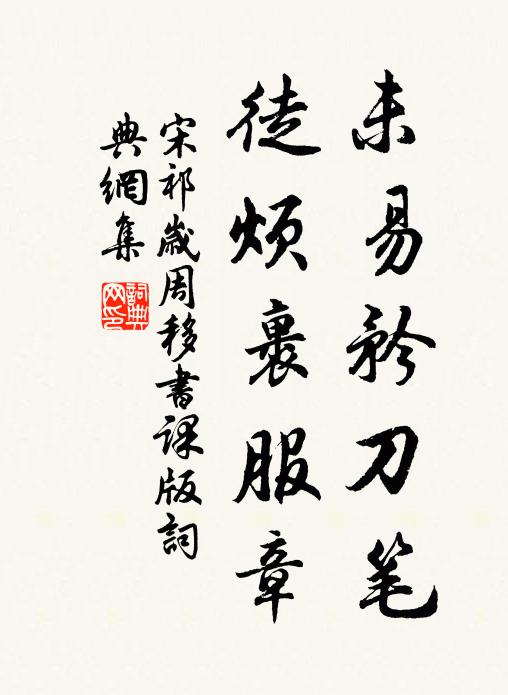 未易矜刀笔
徒烦裹服章
宋祁歲周移書課版詞
典網集
詞典网印